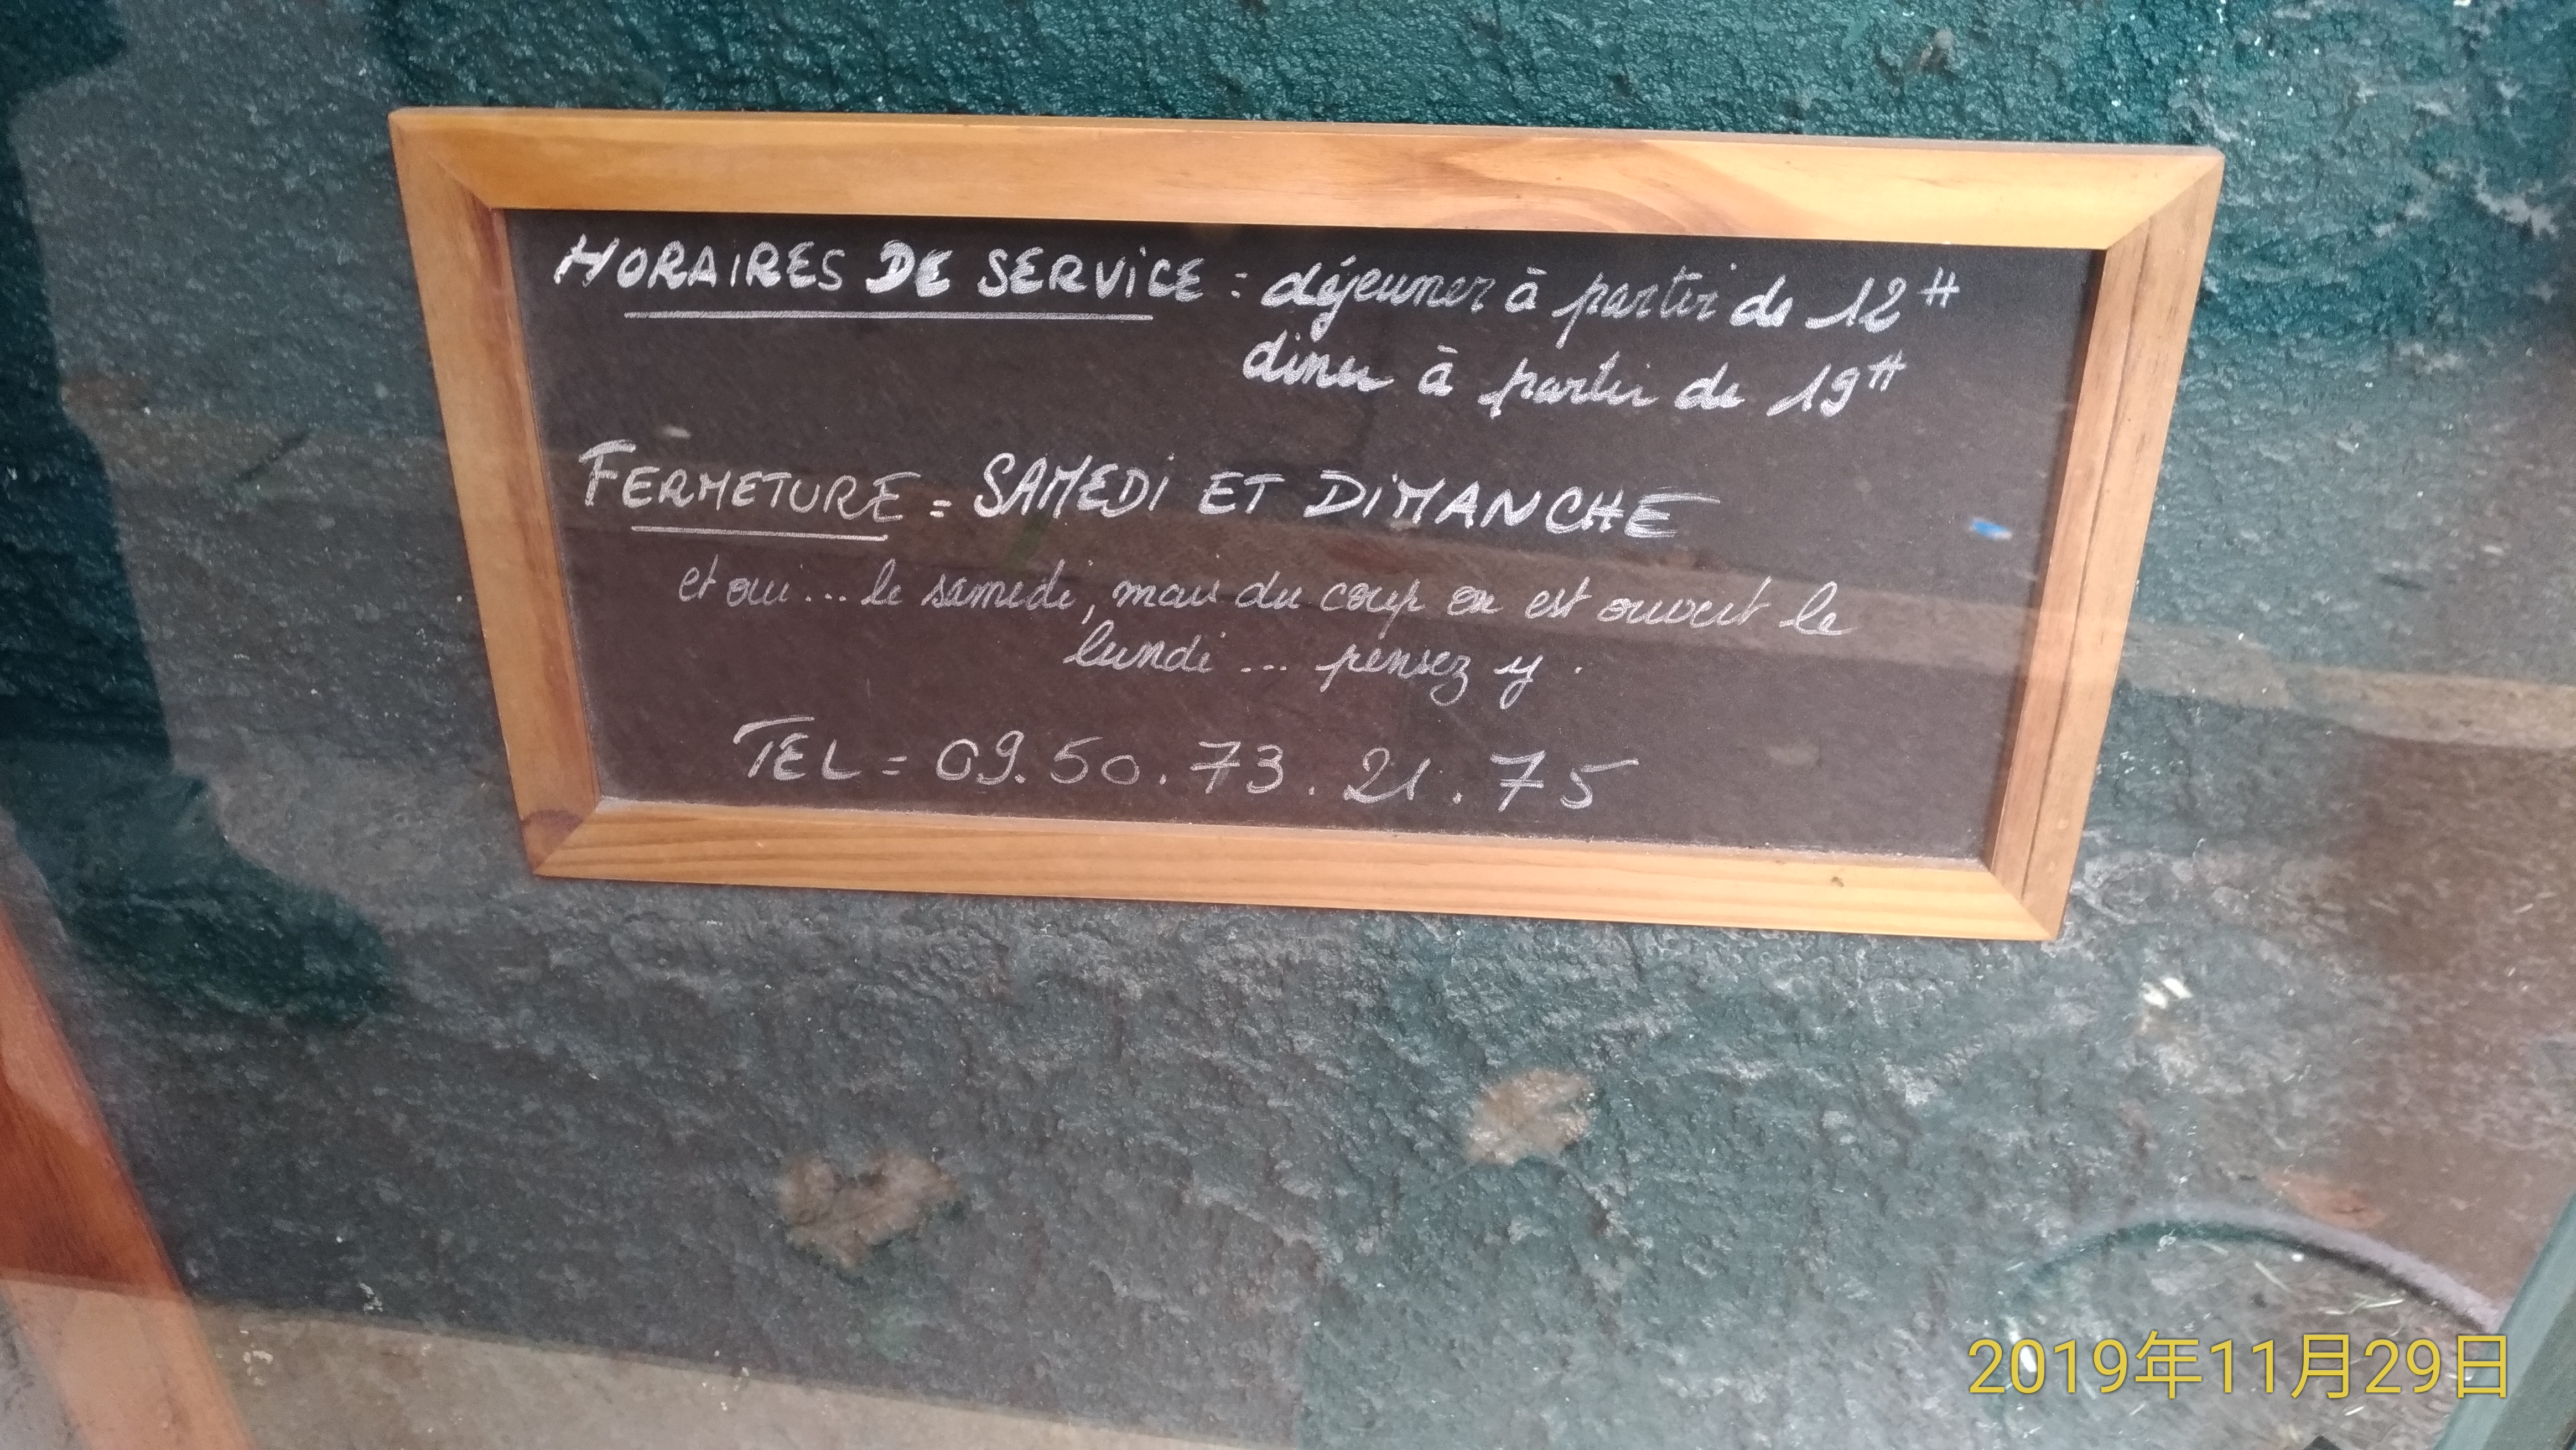 HORAIRES DE SERVICE : déjeuner à partir de 12H
diner à partir de 19H
FERMETURE = SAMEDI ET DIMANCHE
et oui... le samedi, mais du coup on est ouvert le
lundi ... pensez y.
TEL = 09.50.73.21.75
2019年11月29日